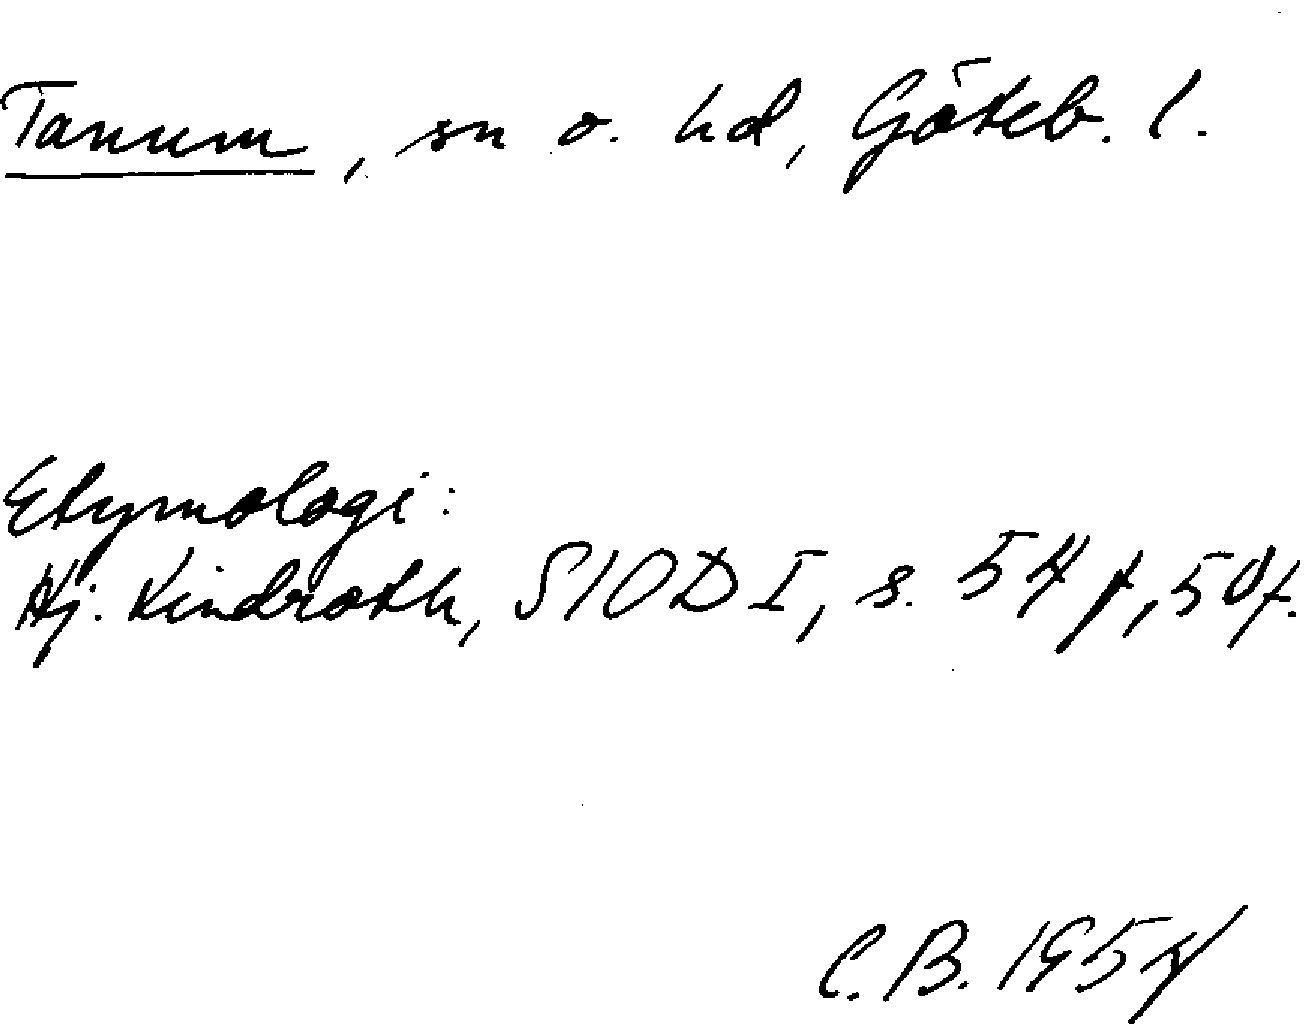 Tanum, sn o. hd, Göteb. l.
Etymologi:
Hj. Lindroth, SIOD I, s. 54 f, 50 f.
C. B. 1954